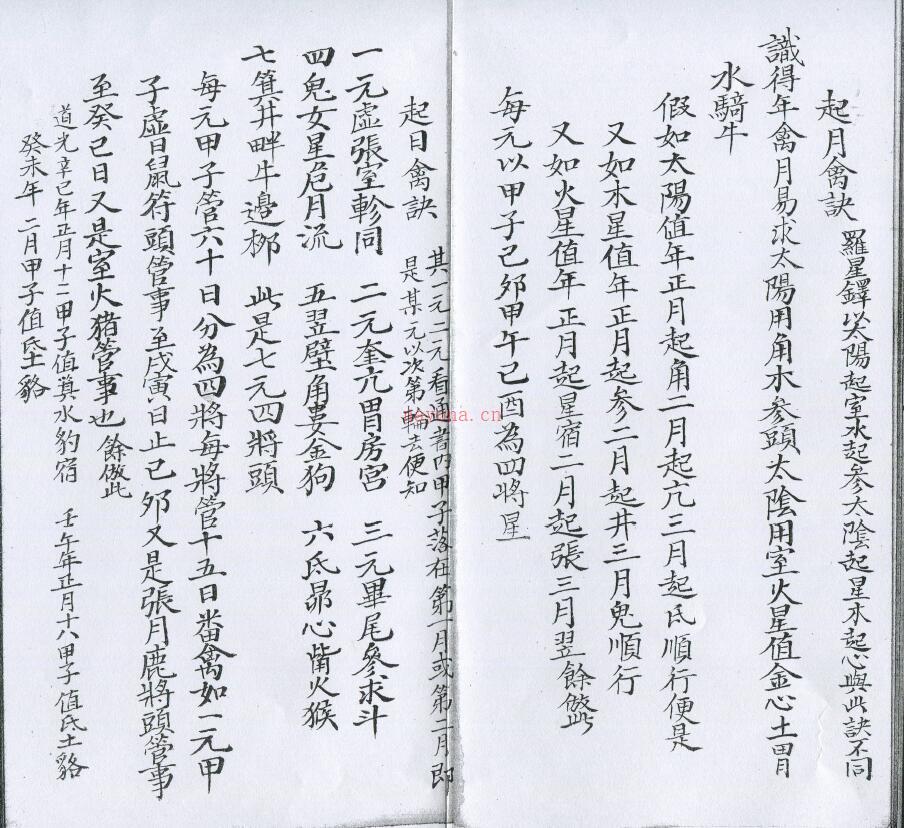 起月禽訣 羅星鐸以太陽起室水起參太陰起星木起心與此訣不同
識得年禽月易求太陽用角木參頭太陰用室火星值金心土胃
水騎牛
假如太陽值年正月起角二月起亢三月起氐順行便是
又如木星值年正月起參二月起井三月鬼順行
又如火星值年正月起星宿二月起張三月翌餘倣此
每元以甲子己夘甲午己酉為四將星
起日禽訣 其一元二元看通書内甲子落在第一月或第二月即
是某元以次第輪去便知
一元虛張室軫同 二元奎亢胃房宮 三元畢尾參求斗
四鬼女星危月流 五翌壁角婁金狗 六氐昴心觜火猴
七箕井畔牛邊栁 此是七元四將頭
每元甲子管六十日分為四將每將管十五日畨禽如一元甲
子虛日鼠符頭管事至戌寅日止己夘又是張月鹿將頭管事
至癸己日又是室火猪管事也 餘倣此
道光辛巳年正月十二甲子值箕水豹宿 壬午年正月十八甲子值氐土貉
癸未年二月甲子值氐土貉